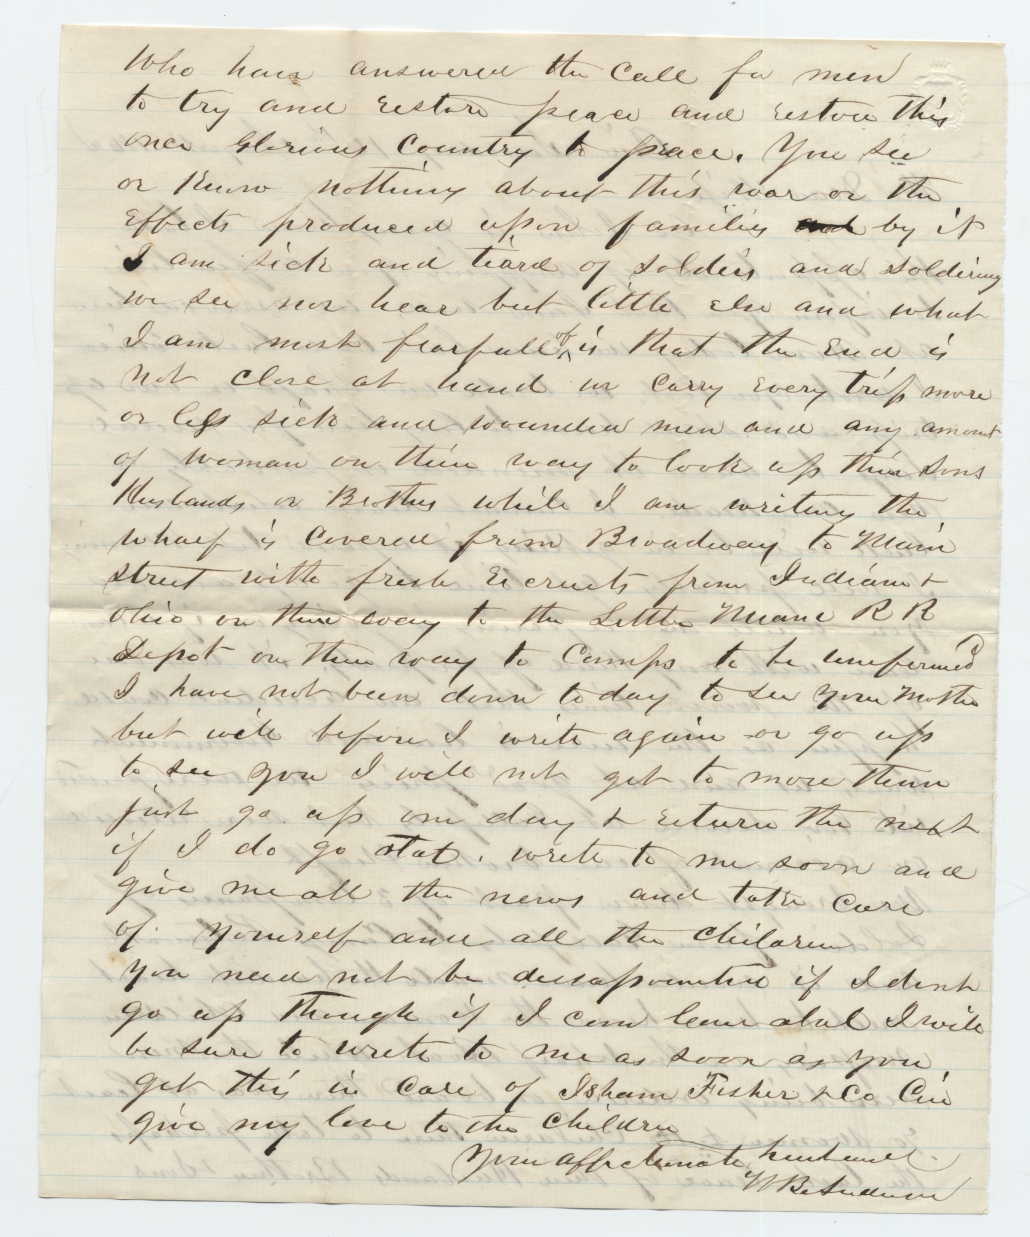 Who have answered the Call for men
to try and restore peace and restore this
once Glorious Country to peace. You see
or Know nothing about this war or the
Effects produced upon families and by it
I am sick and tiard of soldeirs and soldiering
we see nor hear but little Else and what
I am most fearfull of is that the End is
not close at hand we carry Every trip more
or less sick and wounded men and any amount
of woman on their way to look up their Sons
Husbands or Brothers while I am writing the
wharf is Covered from Broadway to Main
street with fresh recruits from Indiana &
Ohio on there way to the Little Miami R R
Depot on their way to Camps to be uneformed
I have not been down today to see your Mother
but will before I write again or go up
to see you I will not get to more than
just go up one day & return the next
if I do go atal. write to me soon and
give me all the news and take care
of yourself and all the children
you need not be dissapointed if I dont
go up Though if I can leave atal I will
be sure to write to me as soon as you
get this in care of Isham Fisher & Co Cin
give my love to the children
Your affectionate husband
W B Anderson